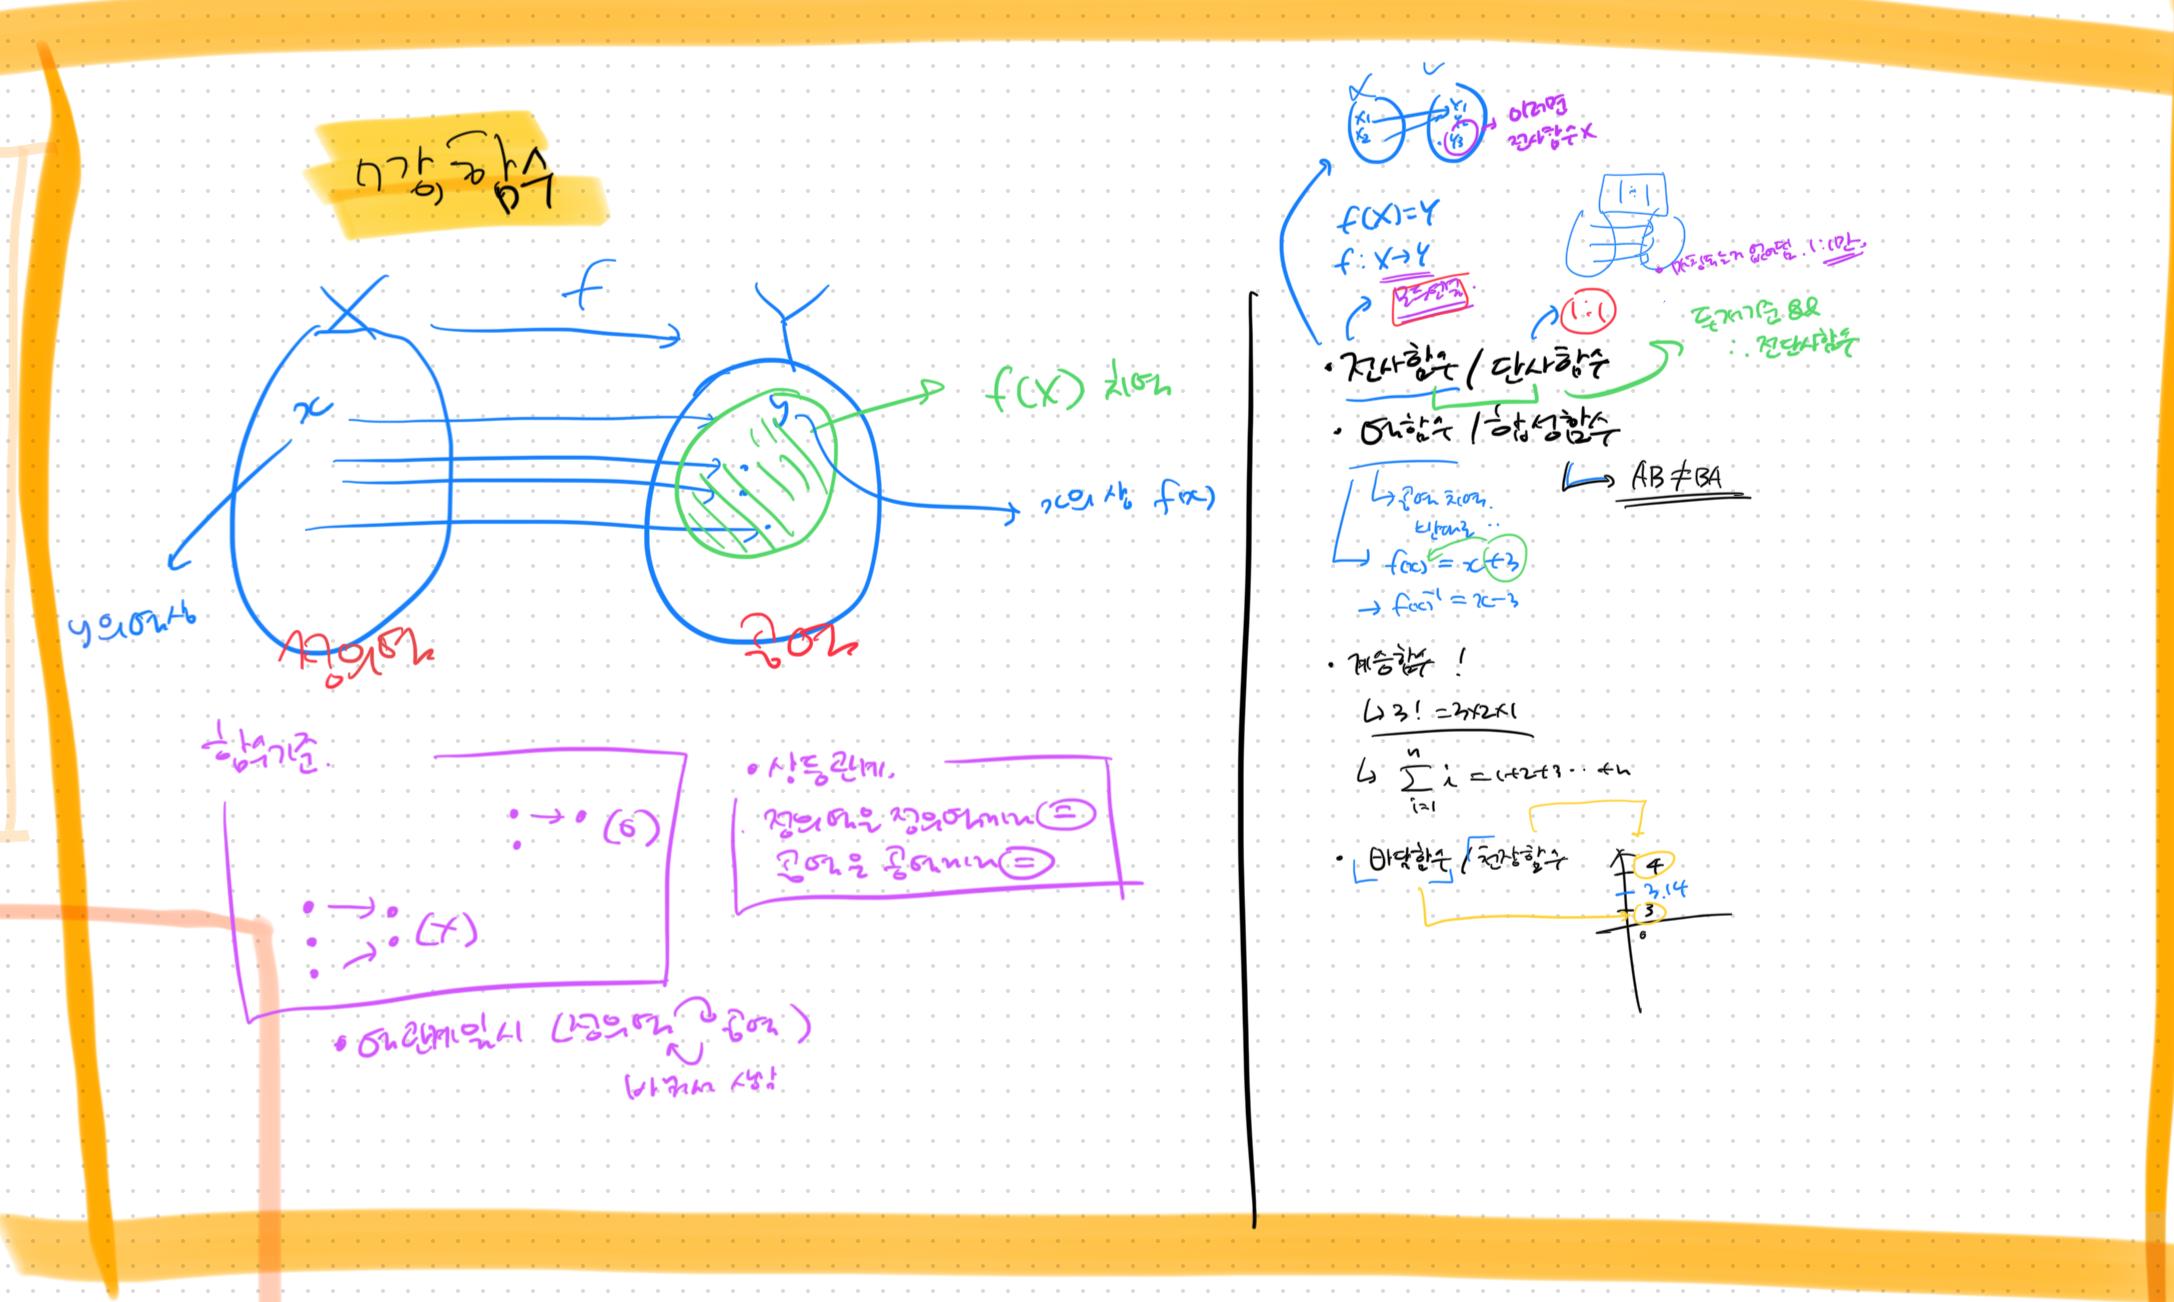 7강, 함수
X f Y
x
y
f(X) 치역
x의 상 f(x)
y의 역상
정의역
공역
함수기준.
(o)
(x)
• 상등관계.
정의역은 정의역끼리 =
공역은 공역끼리 =
• 역관계일시 (정의역 공역)
바꿔서 생각
X Y
x1 y1
x2 y2
y3
이러면
전사함수 X
f(X)=Y
f : X→Y
1:1
없어됨. 1:1만.
1:1
∴ 전단사함수
• 전사함수 / 단사함수
• 역함수 / 합성함수
↳ 공역 치역.
반대로..
AB ≠ BA
f(x) = x+3
→ f(x)⁻¹ = x-3
• 계승함수 !
↳ 3! = 3×2×1
↳ n∑i=1 i = 1+2+3... +n
• 바닥함수 / 천장함수
4
3.14
3
0